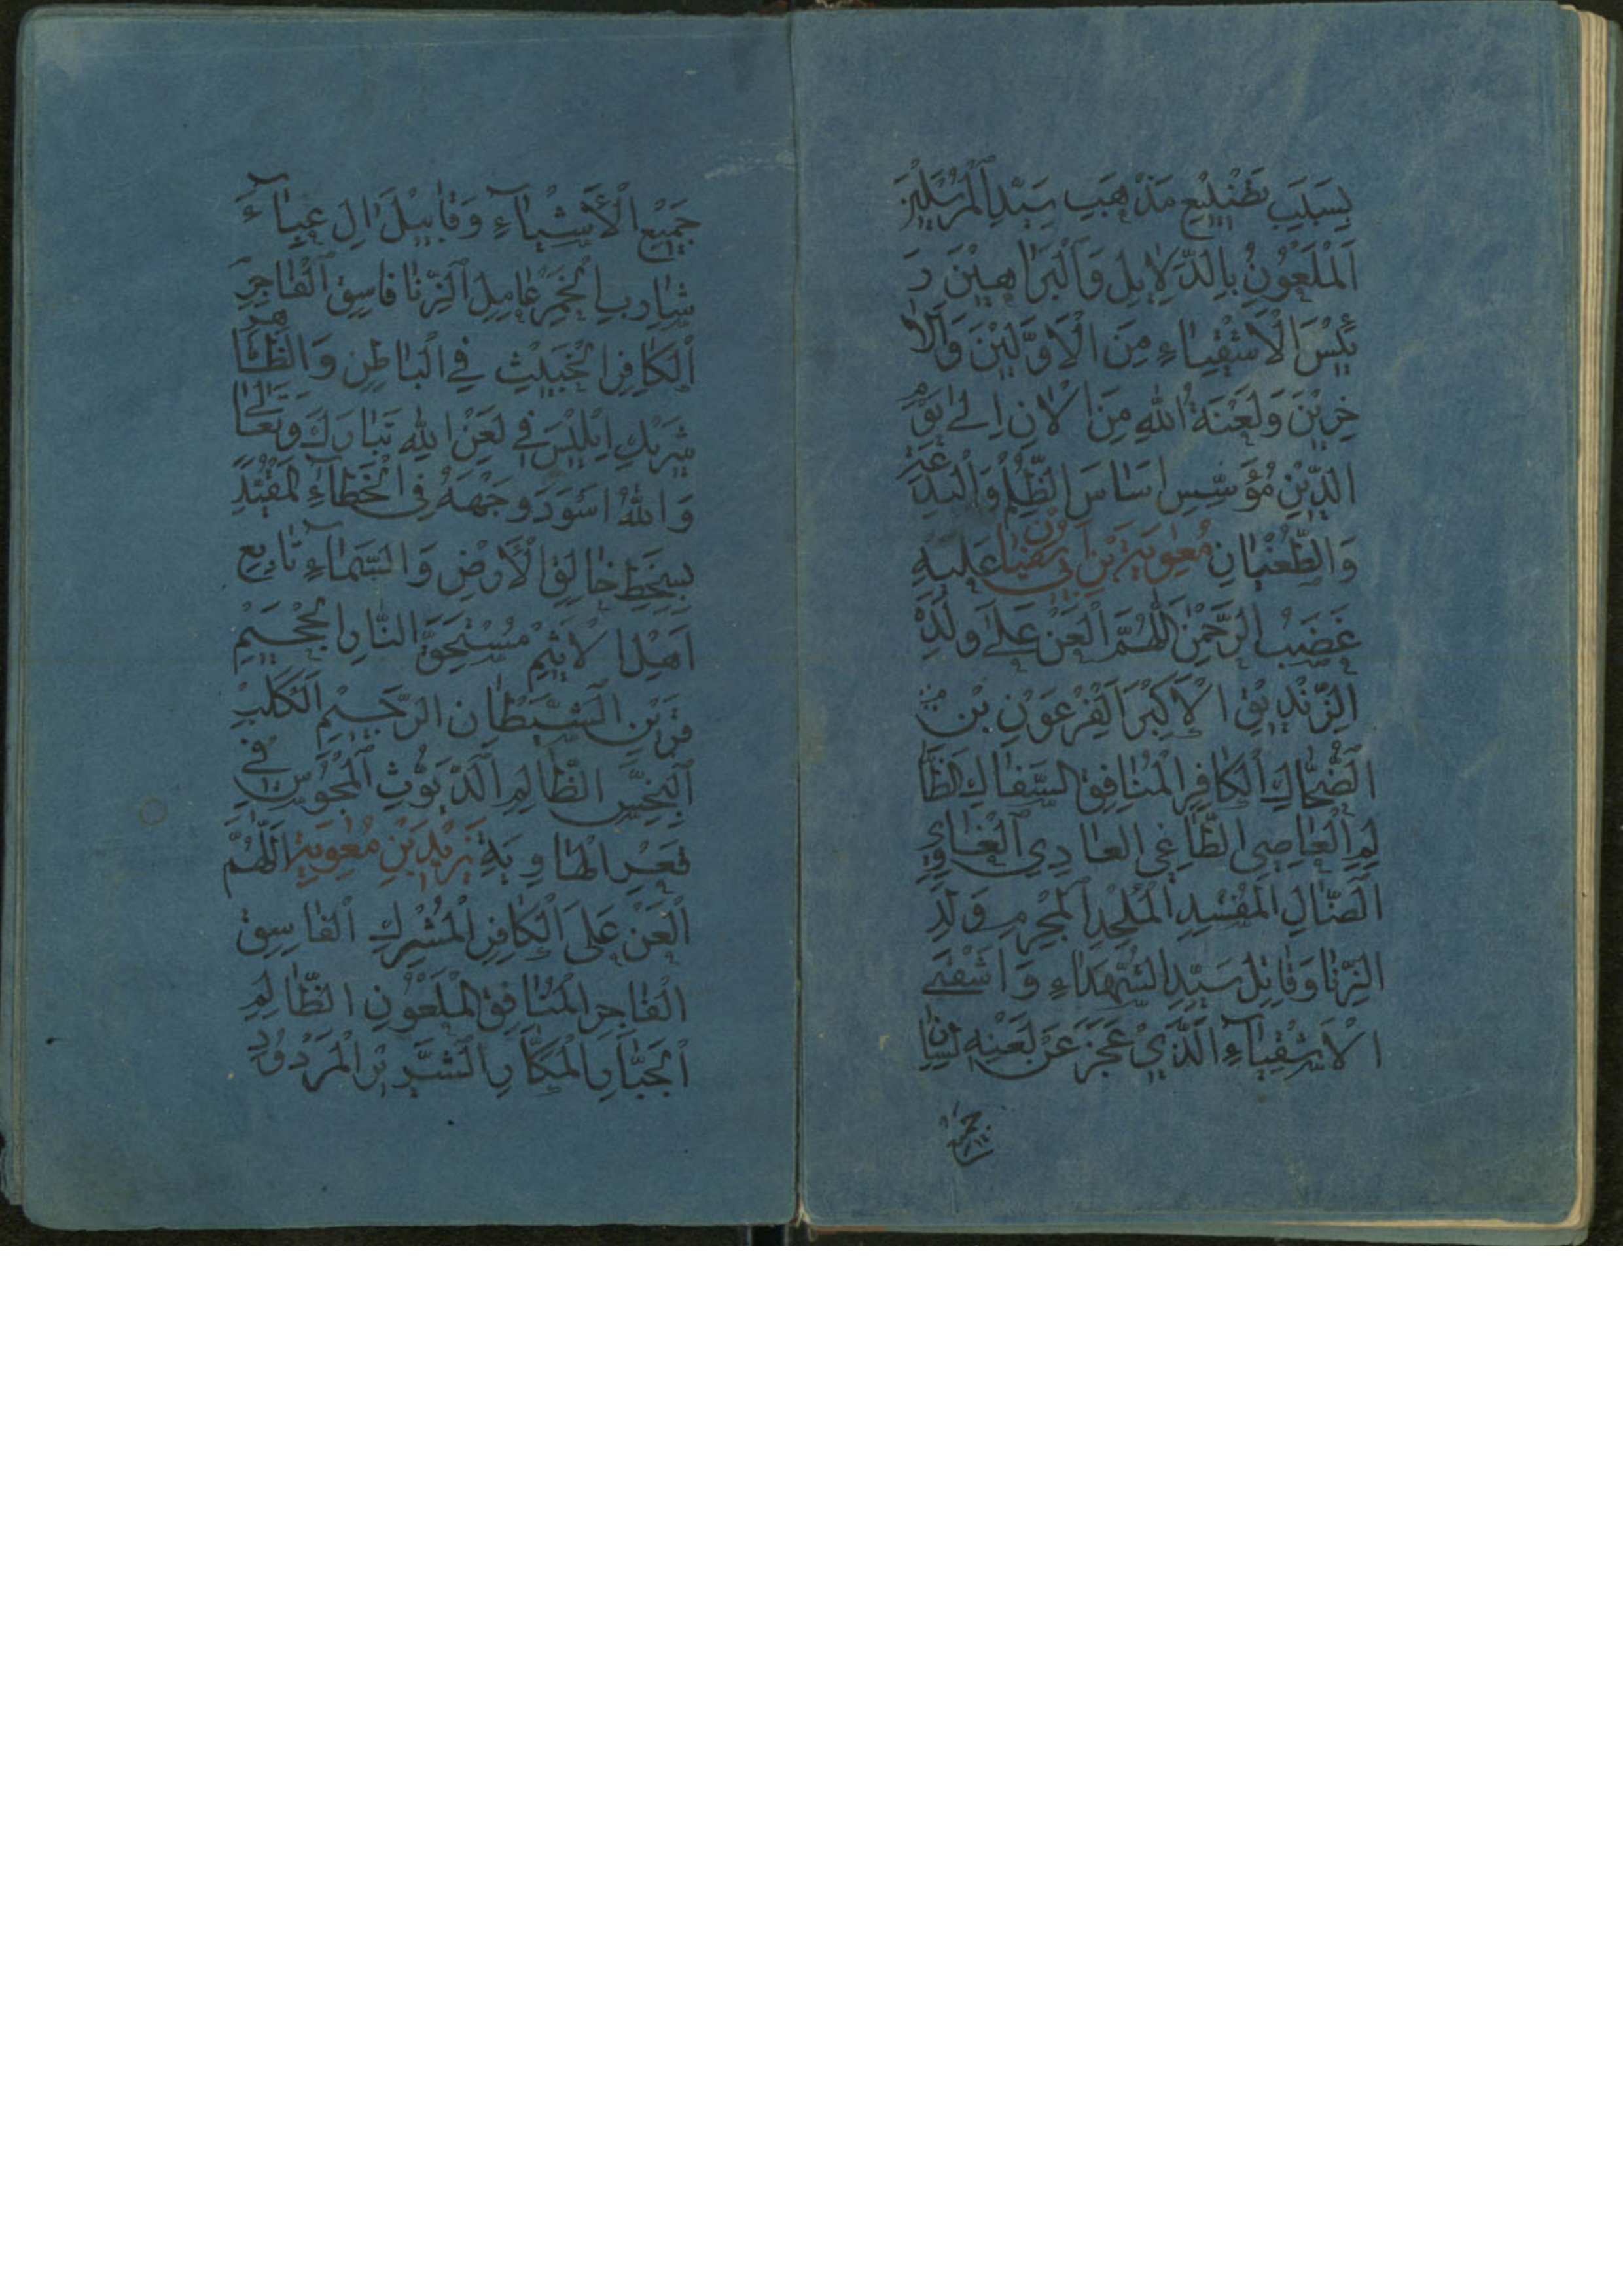 بِسَبَبِ تَضْيِيعِ مَذْهَبِ سَيِّدِ الْمُرْسَلِيْنَ
اَلْمَلْعُوْنِ بِالدَّلَايِلِ وَالْبَرَاهِيْنَ رَ
ئِيْسَ الْاَشْقِيَاءِ مِنَ الْاَوَّلِيْنَ وَالْاٰ
خِرِيْنَ وَلَعْنَةُ اللهِ مِنَ الْاٰنِ اِلٰى يَوْمِ
الدِّيْنِ مُؤَسِّسِ اَسَاسَ الظُّلْمِ وَالْبِدْعَةِ
وَالطُّغْيَانِ مُعٰوِيَةَ بْنِ اَبِي سُفْيَانَ عَلَيْهِ
غَضَبُ الرَّحْمٰنِ اَللّٰهُمَّ الْعَنْ عَلٰى وَلَدِهِ
الزِّنْدِيْقِ الْاَكْبَرِ الْفِرْعَوْنِ بْنِ
الضَّحَّاكِ الْكَافِرِ الْمُنَافِقِ السَّفَّاكِ الظَّا
لِمِ الْعَاصِي الطَّاغِي العَادِي الْغَاوِي
الضَّالِ الْمُفْسِدِ الْمُلْحِدِ الْمُجْرِمِ وَلَدِ
الزِّنَا وَقَاتِلِ سَيِّدِ الشُّهَدَاءِ وَاَشْقَى
الْاَشْقِيَاءِ الَّذِيْ عَجَزَ عَنْ لَعْنِهِ لِسَانُ
جَمِيْعِ
جَمِيْعِ الْاَشْيَاءِ وَقَابِيْلَ اٰلِ عَبَاءِ
شَارِبِ الْخَمْرِ عَامِلِ الزِّنَا فَاسِقِ الْفَاجِرِ
الْكَافِرِ الْخَبِيْثِ فِي الْبَاطِنِ وَالظَّاهِرِ
شَرِيْكِ اِبْلِيْسَ فِي لَعْنِ اللهِ تَبَارَكَ وَتَعَالٰى
وَاللهُ اَسْوَدَ وَجْهَهُ فِي الْخَطَاءِ لِمُقْتَدٍ
بِسَخَطِ خَالِقِ الْاَرْضِ وَالسَّمَاءِ تَابِعِ
اَهْلِ الْاَثِيْمِ مُسْتَحَقِّ النَّارِ الْجَحِيْمِ
قَرِيْنِ الشَّيْطَانِ الرَّجِيْمِ الْكَلْبِ
النَّجِسِ الظَّالِمِ الدَّيُّوْثِ الْمَجُوْسِ فِي
قَعْرِ الْهَاوِيَةِ يَزِيْدِ بْنِ مُعٰوِيَةَ اَللّٰهُمَّ
الْعَنْ عَلَى الْكَافِرِ الْمُشْرِكِ الفَاسِقِ
الْفَاجِرِ الْمُنَافِقِ الْمَلْعُوْنِ الظَّالِمِ
الْجَبَّارِ الْمَكَّارِ الشَّرِيْرِ الْمَرْدُوْدِ